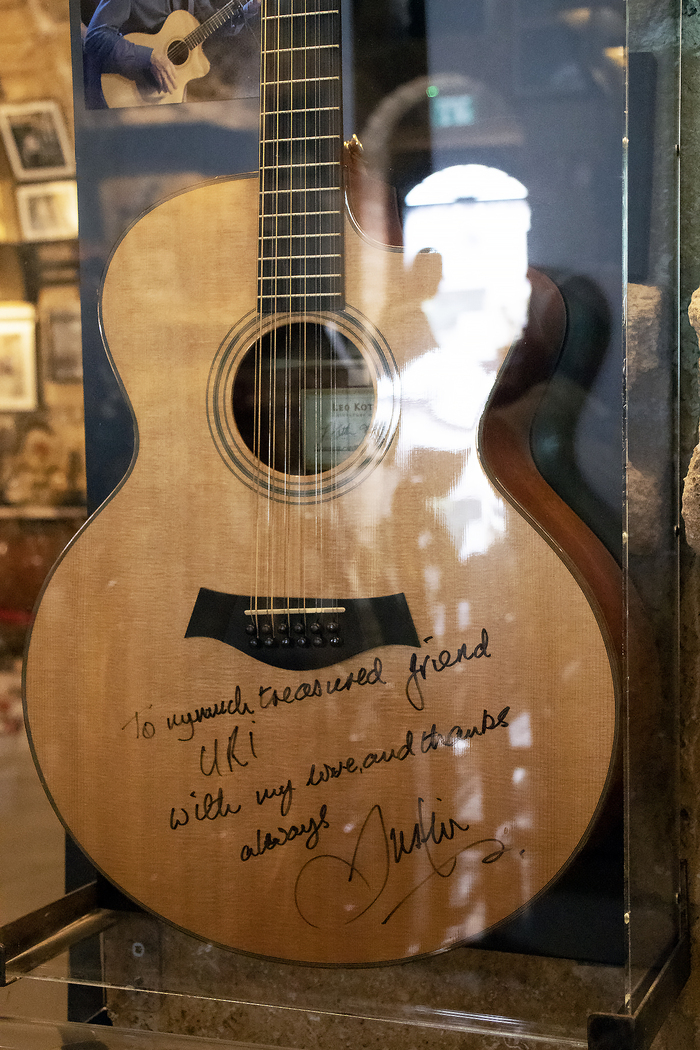 LEO KOT
To my much treasured friend
URi
with my love, and thanks
always
Justin